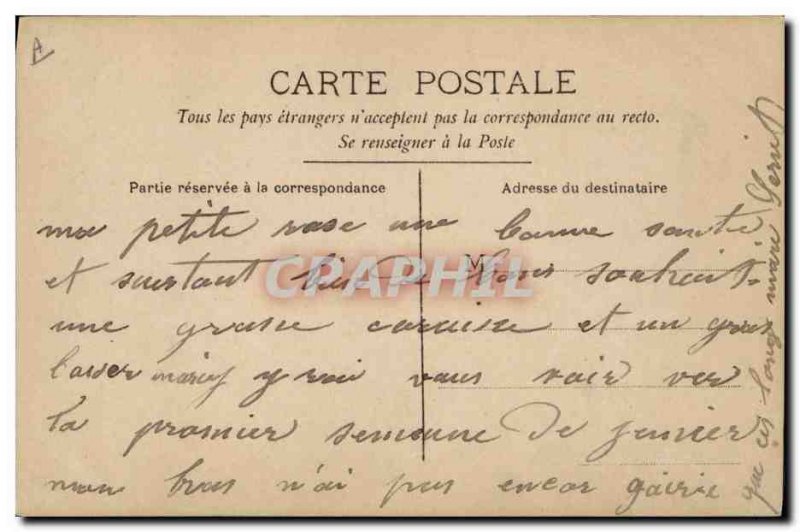 A
CARTE POSTALE
Tous les pays étrangers n'acceptent pas la correspondance au recto.
Se renseigner à la Poste
Partie réservée à la correspondance
Adresse du destinataire
M
ma petite rose une bonne santé
et surtout bien de bons souhait
une grosse caraisse et un gros
baiser y rai vous voir ver
la promier semaine de janvier
mon bras n'ai pas encor gairie
que ces long
CRAPHIL